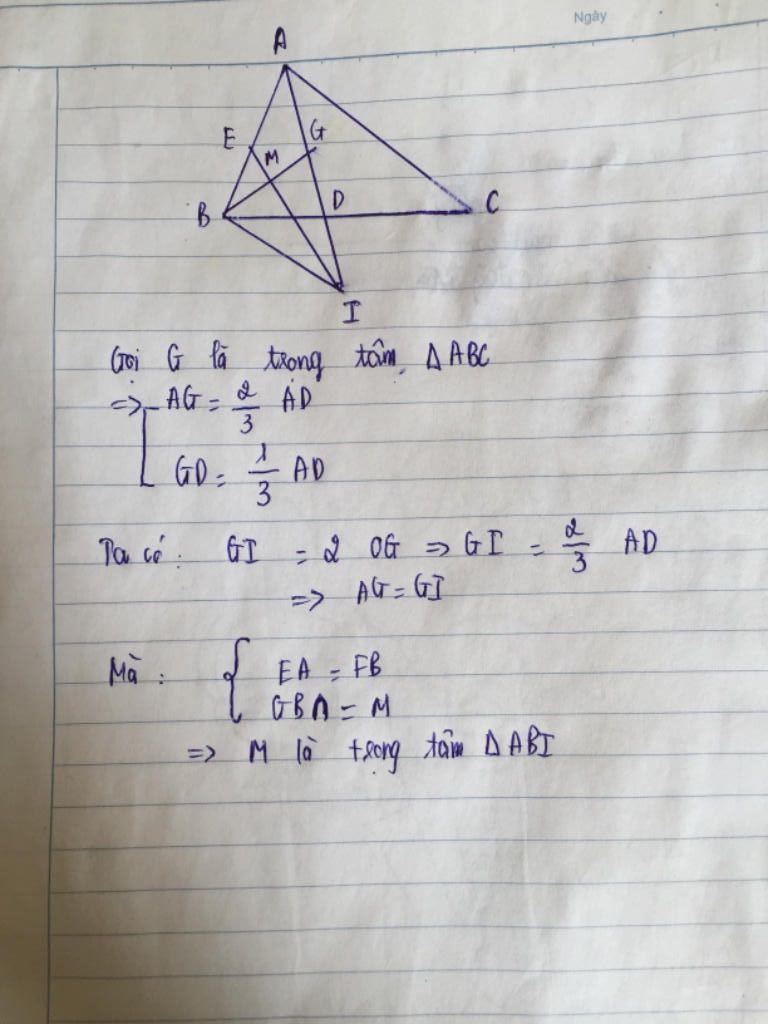 Ngày
A
E
G
M
B
D
C
I
Gọi G là trọng tâm ΔABC
=> AG = 2/3 AD
GD = 1/3 AD
Ta có: GI = 2 OG => GI = 2/3 AD
=> AG = GI
Mà: { EA = FB
GB ∩ = M
=> M là trọng tâm ΔABI